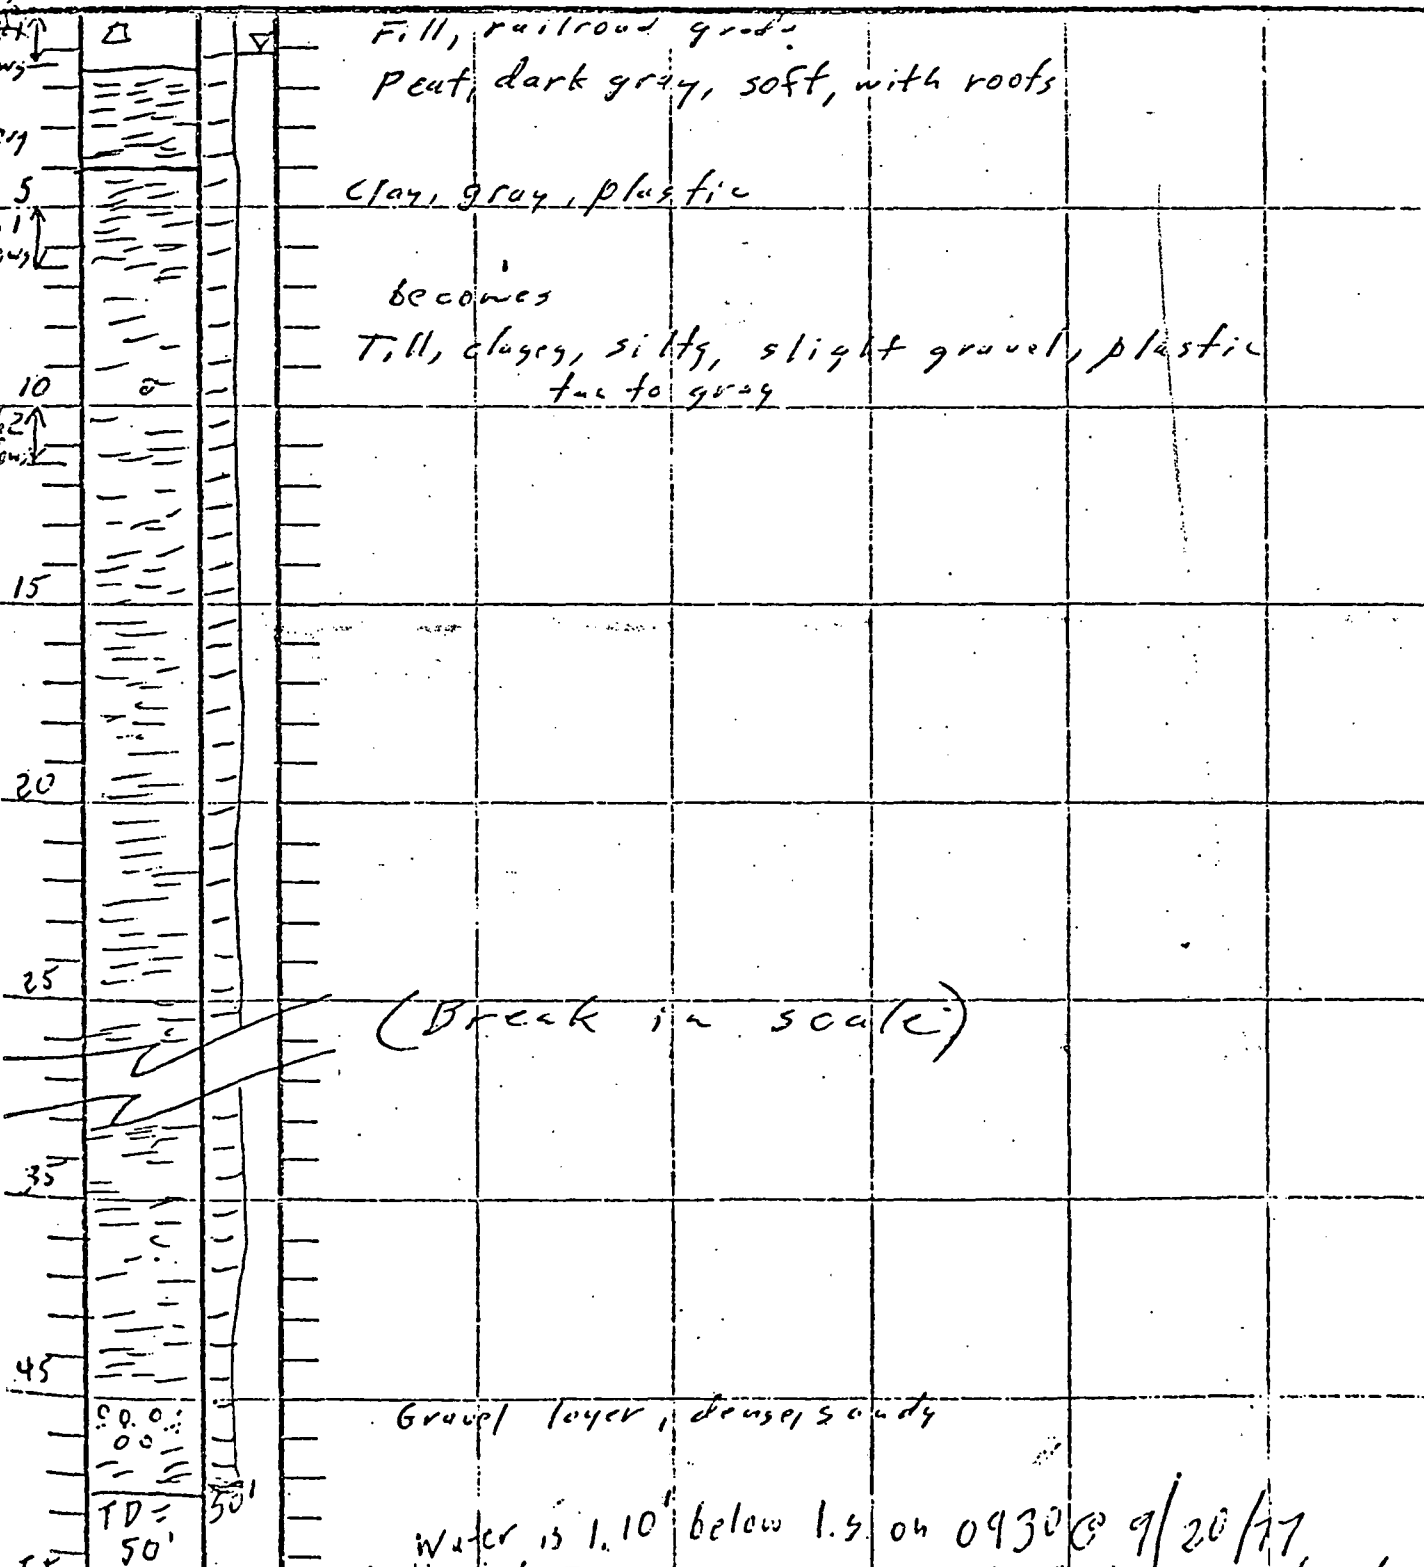 Fill, railroad grade
Peat, dark gray, soft, with roots
5
Clay, gray, plastic
becomes
Till, clayey, silty, slight gravel, plastic
10
tan to gray
15
20
25
(Break in scale)
35
45
Gravel layer, dense, sandy
TD =
50'
50'
Water is 1.10' below l.s. on 0930 @ 9/20/77